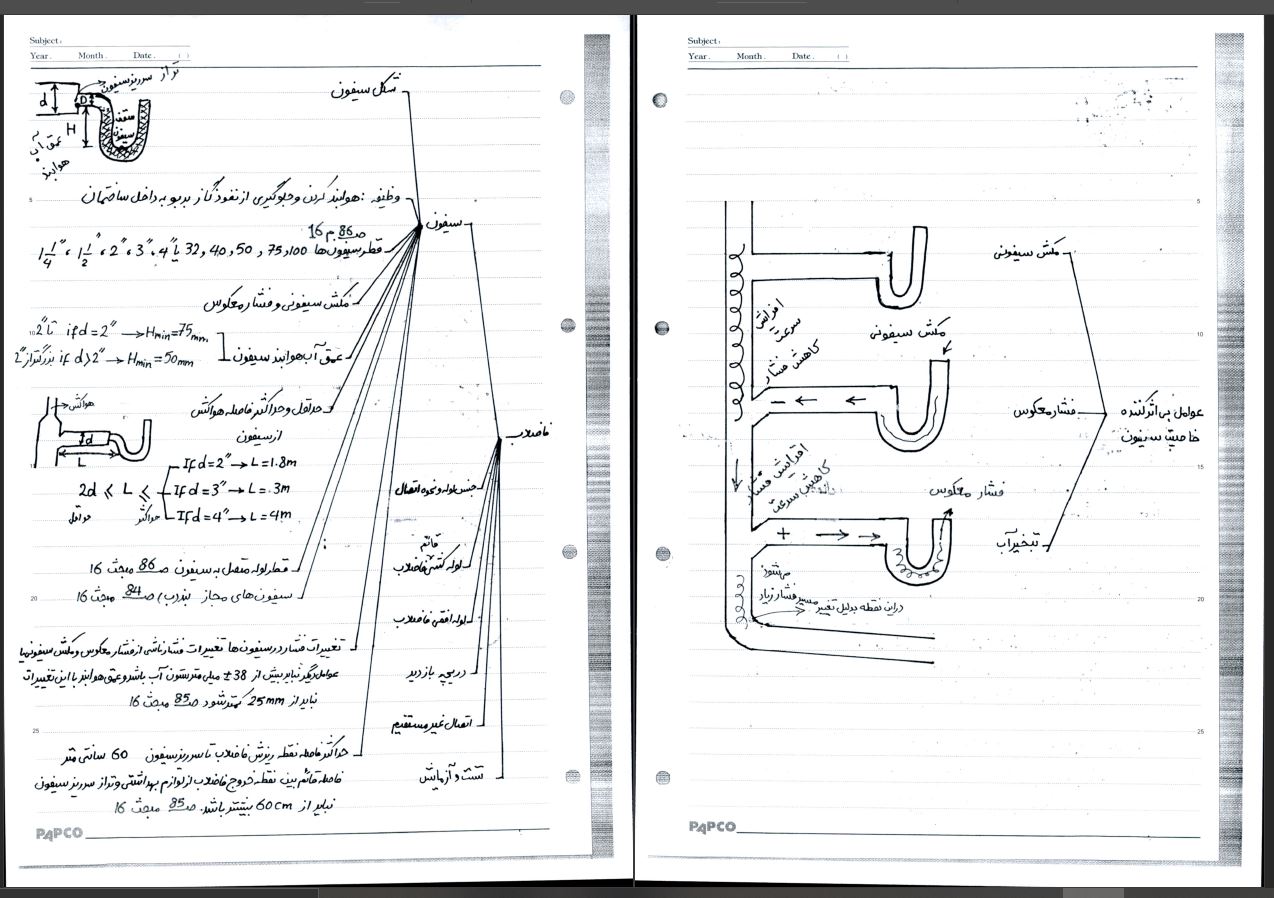 Subject:
Year. Month. Date. ( )
تراز سرریز سیفون
d
D
H
سقف سیفون
عمق آب
هوابند
شکل سیفون
وظیفه : هوابند کردن و جلوگیری از نفوذ گاز بدبو به داخل ساختمان
5
سیفون
ص 86 م 16
قطر سیفون‌ها 32, 40, 50, 75, 100 یا 4" , 3" , 2" , 1 1/2" , 1 1/4"
مکش سیفونی و فشار معکوس
10
تا 2" if d = 2" → Hmin = 75mm
بزرگتر از 2" if d > 2" → Hmin = 50mm
عمق آب هوابند سیفون
هواکش
d
L
حداقل و حداکثر فاصله هواکش
از سیفون
فاضلاب
15
If d = 2" → L = 1.8m
2d ≤ L ≤
If d = 3" → L = 3m
If d = 4" → L = 4m
حداقل
حداکثر
جنس لوله و نحوه اتصال
لوله کشی قائم فاضلاب
قطر لوله متصل به سیفون ص 86 مبحث 16
20
سیفون های مجاز بند (ب) ص 84 مبحث 16
لوله افقی فاضلاب
تغییرات فشار در سیفون ها تغییرات فشار ناشی از فشار معکوس و مکش سیفونی یا
عوامل دیگر نباید بیش از 38 ± میلی متر ستون آب باشد و عمق هوابند با این تغییرات
نباید از 25mm کمتر شود ص 85 مبحث 16
دریچه بازدید
اتصال غیر مستقیم
25
حداکثر فاصله نقطه ریزش فاضلاب تا سرریز سیفون 60 سانتی متر
فاصله قائم بین نقطه خروج فاضلاب از لوازم بهداشتی و تراز سرریز سیفون
نباید از 60 cm بیشتر باشد. ص 85 مبحث 16
تست و آزمایش
PAPCO
Subject:
Year. Month. Date. ( )
5
مکش سیفونی
افزایش
سرعت
کاهش فشار
مکش سیفونی
10
عوامل بی اثر کننده
خاصیت سیفون
فشار معکوس
−
افزایش فشار
کاهش سرعت
15
فشار معکوس
تبخیر آب
+
در این نقطه بدلیل تغییر مسیر فشار زیاد
میشود
20
25
PAPCO